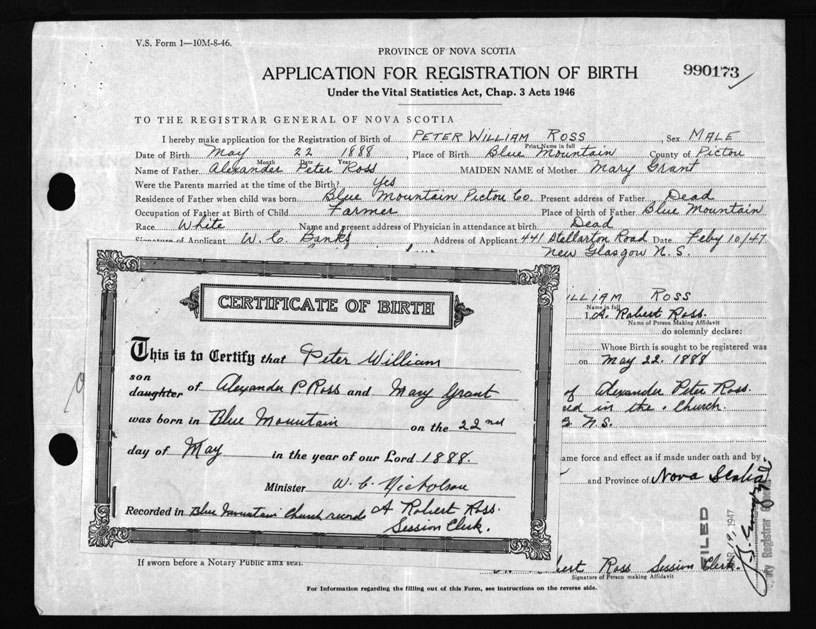 V.S. Form 1—10M-8-46.
PROVINCE OF NOVA SCOTIA
APPLICATION FOR REGISTRATION OF BIRTH
990173
Under the Vital Statistics Act, Chap. 3 Acts 1946
TO THE REGISTRAR GENERAL OF NOVA SCOTIA
I hereby make application for the Registration of Birth of PETER WILLIAM ROSS, Sex MALE
Print Name in full
Date of Birth May 22 1888 Place of Birth Blue Mountain County of Pictou
Month Date Year
Name of Father Alexander Peter Ross MAIDEN NAME of Mother Mary Grant
Were the Parents married at the time of the Birth? Yes
Residence of Father when child was born Blue Mountain Pictou Co. Present address of Father Dead
Occupation of Father at Birth of Child Farmer Place of birth of Father Blue Mountain
Race White Name and present address of Physician in attendance at birth Dead
Signature of Applicant W. C. Banks Address of Applicant 441 Stellarton Road Date Feby 10/47
New Glasgow N.S.
CERTIFICATE OF BIRTH
This is to Certify that Peter William
son
daughter of Alexander P. Ross and Mary Grant
was born in Blue Mountain on the 22nd
day of May in the year of our Lord 1888.
Minister W. C. Nicholson
Recorded in Blue Mountain Church record A Robert Ross.
Session Clerk.
WILLIAM ROSS
Name in full
I, A. Robert Ross.
Name of Person Making Affidavit
do solemnly declare:
Whose Birth is sought to be registered was
on May 22. 1888
of Alexander Peter Ross.
in the Church.
N.S.
ame force and effect as if made under oath and by
and Province of Nova Scotia
FILED
1947
Registrar
If sworn before a Notary Public amx seal.
Robert Ross Session Clerk.
Signature of Person making Affidavit
For Information regarding the filling out of this Form, see instructions on the reverse side.